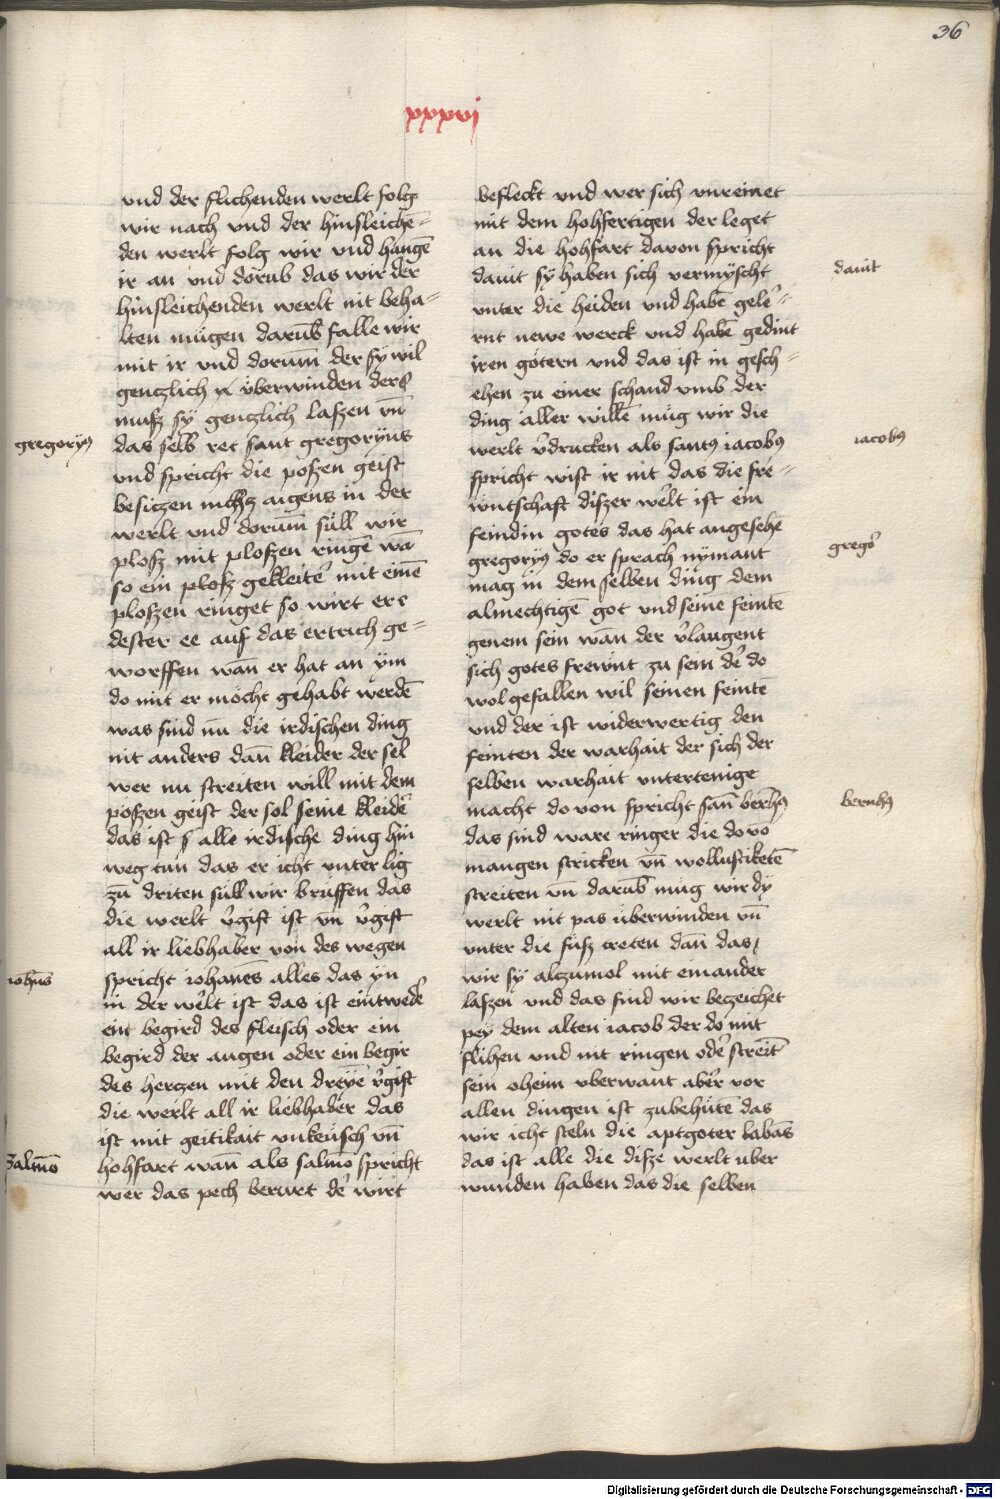 36
xxxvj
vnd der flichenden werlt folg
wir nach vnd der hinsleichē-
den werlt folg wir vnd hangē
ir an vnd dorūb das wir der
hinsleichenden werlt nit beha-
lten mügen darūb falle wir
mit ir vnd dorum̄ der sy wil
genczlich überwinden der
musz sy genczlich laszen vn̄
gregoryꝰ
das selb ret sant gregoryus
vnd spricht die poszen geist
besiczen nichcz aigens in der
werlt vnd dorum̄ süll wir
plosz mit ploszen ringē wā
so ein plosz gekleitē mit einē
ploszen ringet so wirt er
dester ee auf das ertrich ge-
worffen wān er hat an ym
do mit er mocht gehabt werdē
was sind nū die irdischen ding
nit anders dān kleider der sel
wer nu streiten will mit dem
poszen geist der sol seine kleidē
das ist alle irdische ding hin
weg tun das er icht vnter lig
zū driten süll wir bruffen das
die werlt v̄gift ist vn̄ v̄gift
all ir liebhaber von des wegen
iohn̄s
spricht iohanēs alles das yn
in der welt ist das ist eintwedē
ein begird des fleisch oder ein
begird der augen oder ein begir
des herczen mit den dreyē v̄gift
die werlt all ir liebhaber das
ist mit geitikait vnkeusch vn̄
Salmō
hohfart wān als salmō spricht
wer das pech berurt dē wirt
befleckt vnd wer sich vnreinet
mit dem hohfertigen der leget
an die hohfart davon spricht
dauit
dauit sy haben sich vermyscht
vnter die heiden vnd habē gele-
rnt newe werck vnd habē gedint
iren götern vnd das ist in gesch-
ehen zu einer schand vmb der
ding aller willē müg wir die
iacobꝰ
werlt v̄drucken als santꝰ iacobꝰ
spricht wist ir nit das die fre-
wntschaft diszer welt ist ein
feindin gotes das hat angesehē
gregō
gregoryꝰ do er sprach nymant
mag in dem selben ding dem
almechtigē got vnd seinē feintē
genem sein wān der v̄laugent
sich gotes frewnt zu sein dē do
wolgefallen wil seinen feintē
vnd der ist widerwertig den
feinten der warhait der sich der
selben warhait vntertenige
bernhꝰ
macht do von spricht san̄ bernhꝰ
das sind ware ringer die do vō
mangen stricken vn̄ wollustiketē
streiten vn̄ darūb müg wir dy
werlt nit pas überwinden vn̄
vnter die füsz treten dān das
wir sy alczumol mit einander
laszen vnd das sind wir beczeichet
pey dem alten iacob der do mit
flihen vnd nit ringen odē streitē
sein oheim vberwant aber vor
allen dingen ist zubehütē das
wir icht steln die aptgoter labās
das ist alle die disze werlt uber
wunden haben das die selben
Digitalisierung gefördert durch die Deutsche Forschungsgemeinschaft - DFG